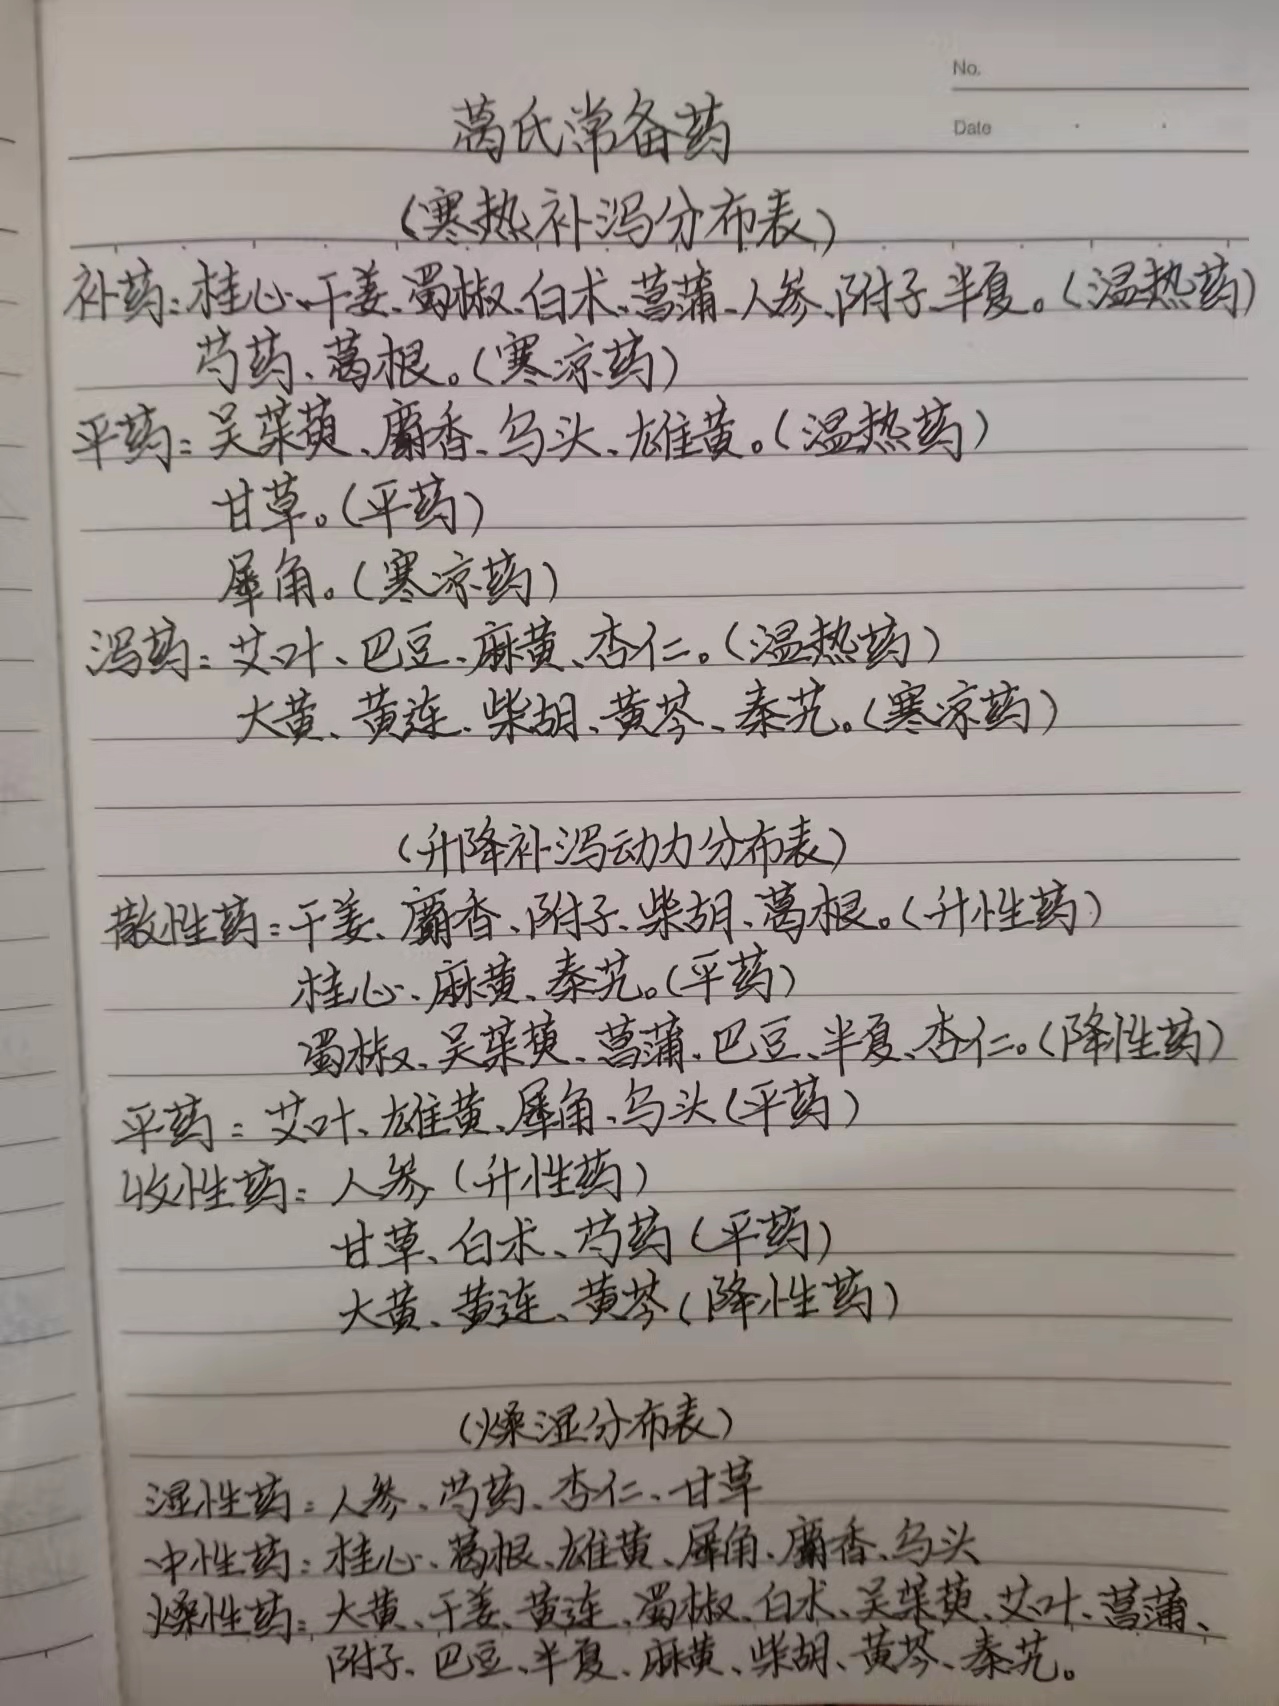 No.
Date
葛氏常备药
(寒热补泻分布表)
补药:桂心、干姜、蜀椒、白术、菖蒲、人参、附子、半夏。(温热药)
芍药、葛根。(寒凉药)
平药:吴茱萸、麝香、乌头、雄黄。(温热药)
甘草。(平药)
犀角。(寒凉药)
泻药:艾叶、巴豆、麻黄、杏仁。(温热药)
大黄、黄连、柴胡、黄芩、秦艽。(寒凉药)
(升降补泻动力分布表)
散性药:干姜、麝香、附子、柴胡、葛根。(升性药)
桂心、麻黄、秦艽。(平药)
蜀椒、吴茱萸、菖蒲、巴豆、半夏、杏仁。(降性药)
平药:艾叶、雄黄、犀角、乌头(平药)
收性药:人参(升性药)
甘草、白术、芍药(平药)
大黄、黄连、黄芩(降性药)
(燥湿分布表)
湿性药:人参、芍药、杏仁、甘草
中性药:桂心、葛根、雄黄、犀角、麝香、乌头
燥性药:大黄、干姜、黄连、蜀椒、白术、吴茱萸、艾叶、菖蒲、
附子、巴豆、半夏、麻黄、柴胡、黄芩、秦艽。